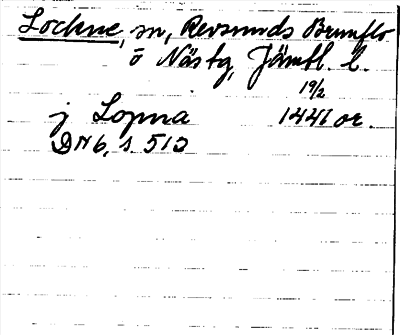 Lockne, sn, Revsunds Brunflo
o Näs tg, Jämtl. l.
19/2
j Lopna 1441 or.
DN 6, s 510